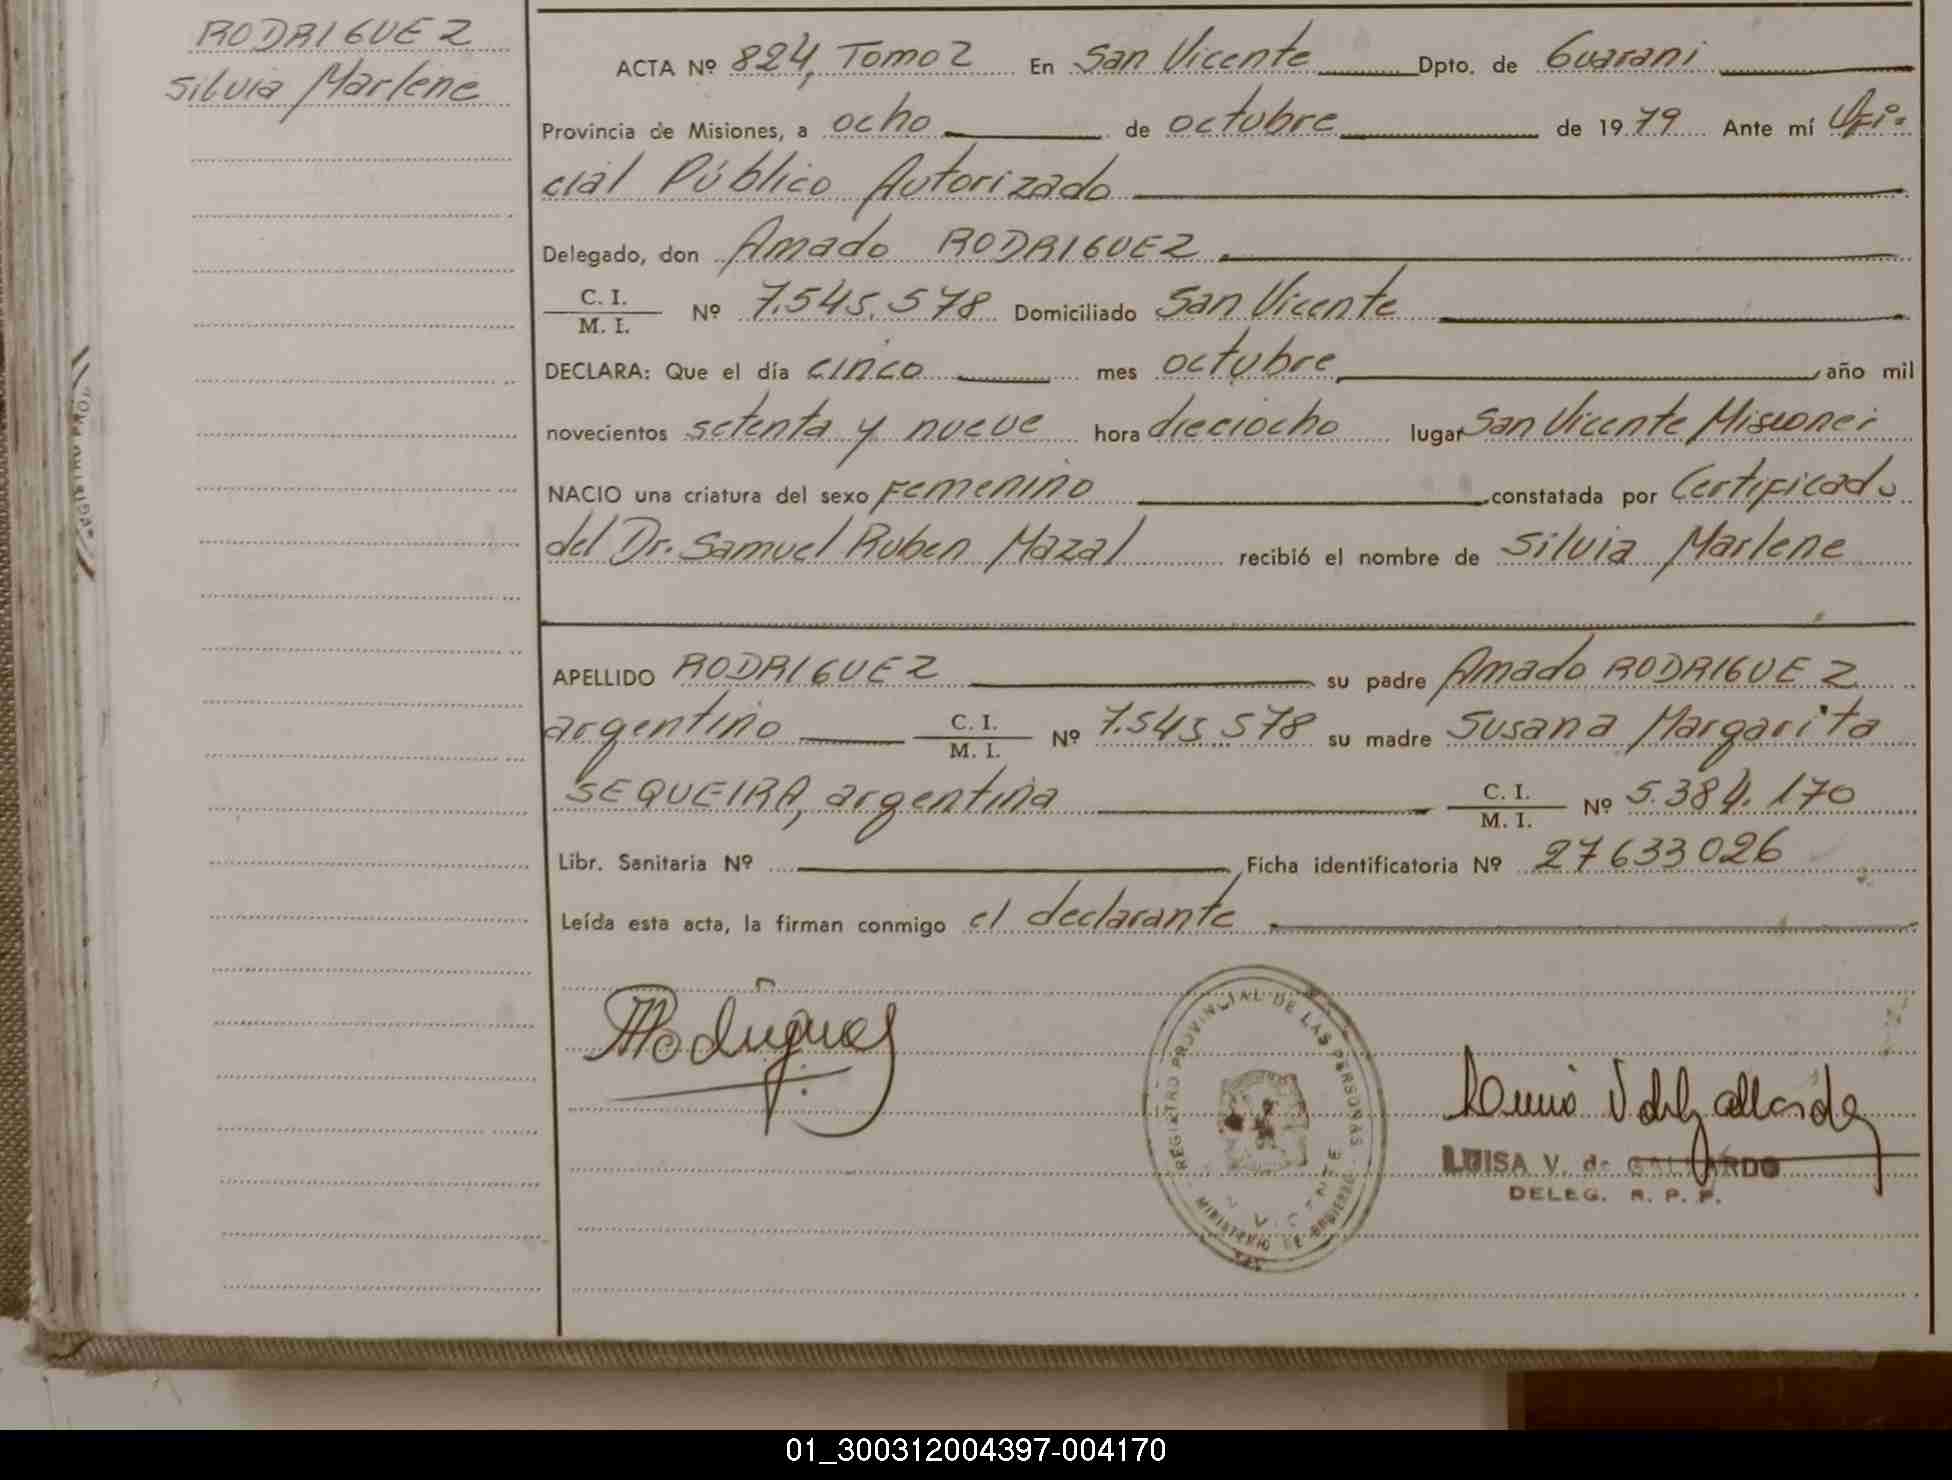 RODRIGUEZ
Silvia Marlene
ACTA Nº 824, Tomo 2 En San Vicente Dpto. de Guarani
Provincia de Misiones, a ocho de octubre de 1979 Ante mí Ofi=
cial Público Autorizado
Delegado, don Amado RODRIGUEZ
C. I.
M. I. Nº 7.545.578 Domiciliado San Vicente
DECLARA: Que el día cinco mes octubre, año mil
novecientos setenta y nueve hora dieciocho lugar San Vicente Misiones
NACIO una criatura del sexo Femenino constatada por Certificado
del Dr. Samuel Ruben Mazal recibió el nombre de Silvia Marlene
APELLIDO RODRIGUEZ su padre Amado RODRIGUEZ
argentino C. I.
M. I. Nº 7.545.578 su madre Susana Margarita
SEQUEIRA, argentina C. I.
M. I. Nº 5.384.170
Libr. Sanitaria Nº Ficha identificatoria Nº 27633026
Leída esta acta, la firman conmigo el declarante
REGISTRO PROVINCIAL DE LAS PERSONAS
MINISTERIO DE GOBIERNO
LUISA V. de GALLARDO
DELEG. R. P. P.
01_300312004397-004170